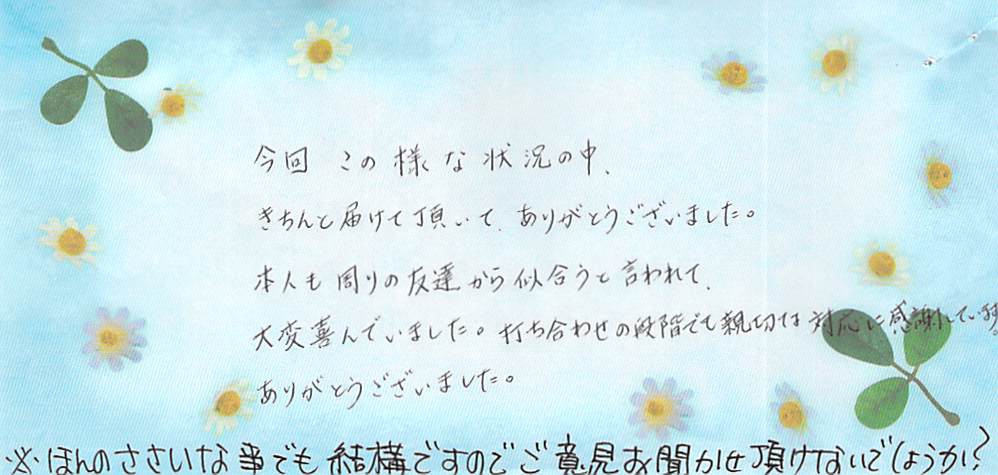 今回 この様な状況の中、
きちんと届けて頂いて、ありがとうございました。
本人も周りの友達から似合うと言われて、
大変喜んでいました。打ち合わせの段階でも親切な対応に感謝しています。
ありがとうございました。
※ほんのささいな事でも結構ですのでご意見お聞かせ頂けないでしょうか?